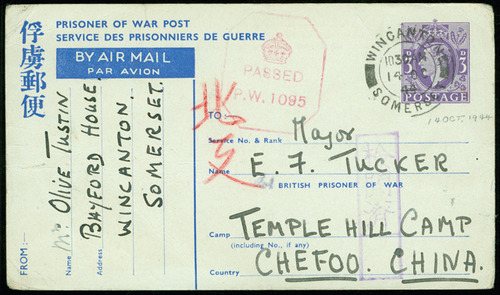 PRISONER OF WAR POST
SERVICE DES PRISONNIERS DE GUERRE
俘虜郵便
BY AIR MAIL
PAR AVION
PASSED
P.W. 1095
WINCANTON
SOMERSET
3D
POSTAGE
14 OCT. 1944
TO:—
Service No. & Rank Major
Name E. F. TUCKER
BRITISH PRISONER OF WAR
Camp TEMPLE HILL CAMP
(including No., if any)
Country CHEFOO. CHINA.
FROM:—
Name Mrs OLIVE TUSTIN
Address BAYFORD HOUSE.
WINCANTON.
SOMERSET.